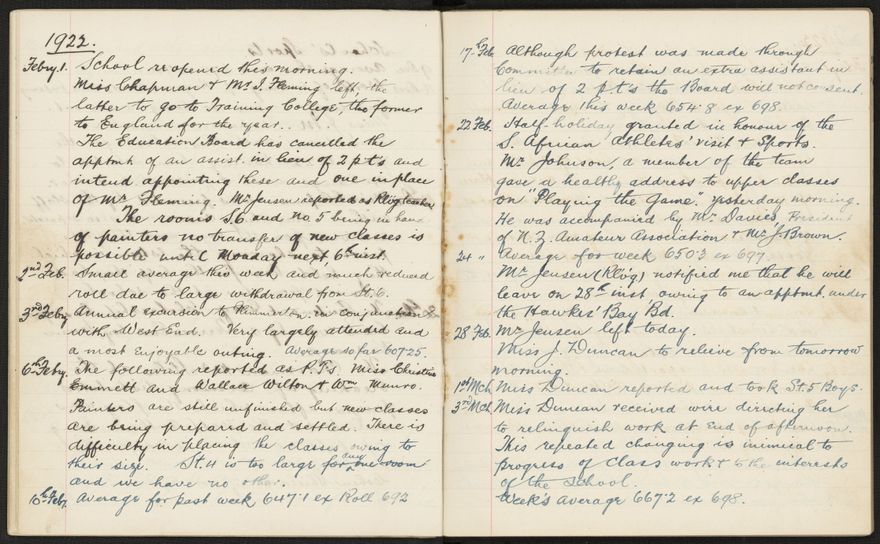 1922.
Febry. 1. School reopened this morning.
Miss Chapman & Mr. J. Fleming left, the
latter to go to Training College, the former
to England for the year..
The Education Board has cancelled the
apptmt of an assist. in lieu of 2 p.t's and
intend appointing these and one in place
of Mr. Fleming. Mr. Jensen reported as Rlvg teacher
The rooms S6 and No. 5 being in hands
of painters no transfer of new classes is
possible until Monday next 6th inst.
2nd Feb. Small average this week and much reduced
roll due to large withdrawal from St. 6.
3rd Febry Annual excursion to in conjunction
with West End. Very largely attended and
a most enjoyable outing. Average so far 607.25.
6th Febry. The following reported as P.T's Miss Christina
Emmett and Wallace Wilton & Wm Munro.
Painters are still unfinished but new classes
are being prepared and settled. There is
difficulty in placing the classes owing to
their size. St. 4 is too large for any one room
and we have no other.
10th Feby. Average for past week 647.1 ex Roll 692
17th Feb. Although protest was made through
Committee to retain an extra assistant in
lieu of 2 p.t's the Board will not consent.
Average this week 654.8 ex 698.
22 Feb. Half-holiday granted in honour of the
S. African Athletes' visit & Sports.
Mr. Johnson, a member of the team
gave a healthy address to upper classes
on "Playing the Game." yesterday morning.
He was accompanied by Mr. Davies President
of N.Z. Amateur Association & Mr. J. Brown.
24 " Average for week 650.3 ex 697.
Mr. Jensen (Rlvg) notified me that he will
leave on 28th inst owing to an apptmt. under
the Hawkes' Bay Bd.
28 Feb. Mr. Jensen left today.
Miss J. Duncan to relieve from tomorrow
morning.
1st Mch Miss Duncan reported and took St. 5 Boys.
3rd Mch Miss Duncan received wire directing her
to relinquish work at end of afternoon.
This repeated changing is inimical to
progress of class work & to the interests
of the school.
Week's average 667.2 ex 698.